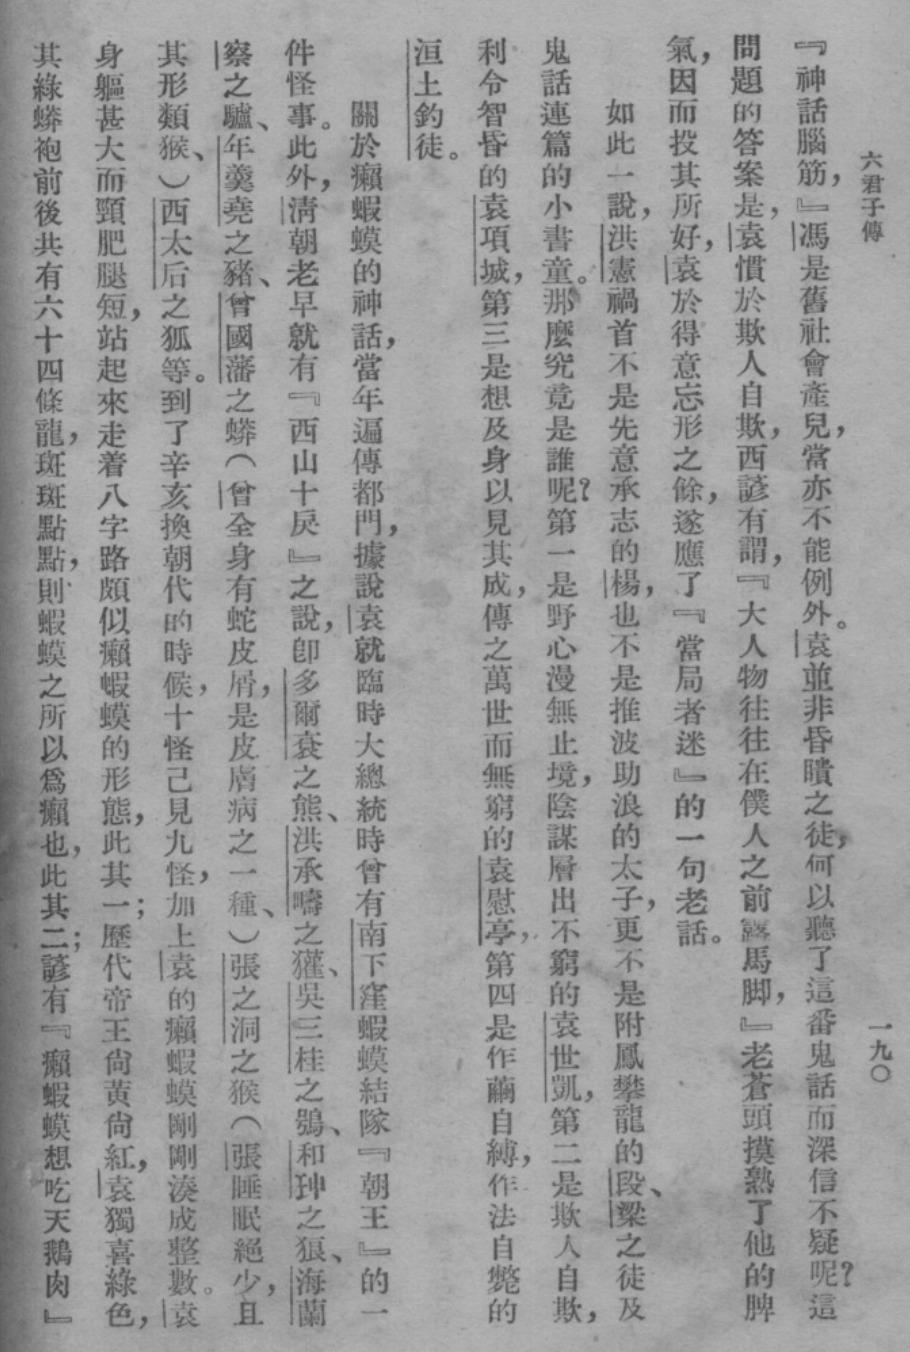 六君子傳
一九〇
『神話腦筋，』馮是舊社會產兒，當亦不能例外。袁並非昏瞶之徒，何以聽了這番鬼話而深信不疑呢？這
問題的答案是，袁慣於欺人自欺，西諺有謂，『大人物往往在僕人之前露馬脚，』老蒼頭摸熟了他的脾
氣，因而投其所好，袁於得意忘形之餘，遂應了『當局者迷』的一句老話。
如此一說，洪憲禍首不是先意承志的楊，也不是推波助浪的太子，更不是附鳳攀龍的段、梁之徒及
鬼話連篇的小書童。那麼究竟是誰呢？第一是野心漫無止境，陰謀層出不窮的袁世凱，第二是欺人自欺，
利令智昏的袁項城，第三是想及身以見其成，傳之萬世而無窮的袁慰亭，第四是作繭自縛，作法自斃的
洹上釣徒。
關於癩蝦蟆的神話，當年遍傳都門，據說袁就臨時大總統時曾有南下窪蝦蟆結隊『朝王』的一
件怪事。此外，清朝老早就有『西山十戾』之說，卽多爾袞之熊、洪承疇之獾、吳三桂之鴞、和珅之狼、海蘭
察之驢、年羹堯之豬、曾國藩之蟒（曾全身有蛇皮屑，是皮膚病之一種、）張之洞之猴（張睡眠絕少，且
其形類猴、）西太后之狐等。到了辛亥換朝代的時候，十怪己見九怪，加上袁的癩蝦蟆剛剛湊成整數。袁
身軀甚大而頸肥腿短，站起來走着八字路頗似癩蝦蟆的形態，此其一；歷代帝王尙黃尙紅，袁獨喜綠色，
其綠蟒袍前後共有六十四條龍，斑斑點點，則蝦蟆之所以爲癩也，此其二；諺有『癩蝦蟆想吃天鵝肉』